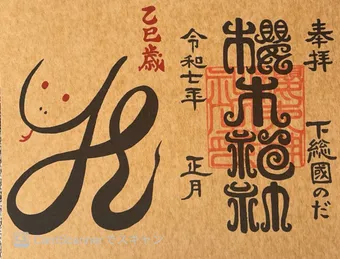 奉拝
下総國のだ
櫻木神社
令和七年
正月
乙巳歳